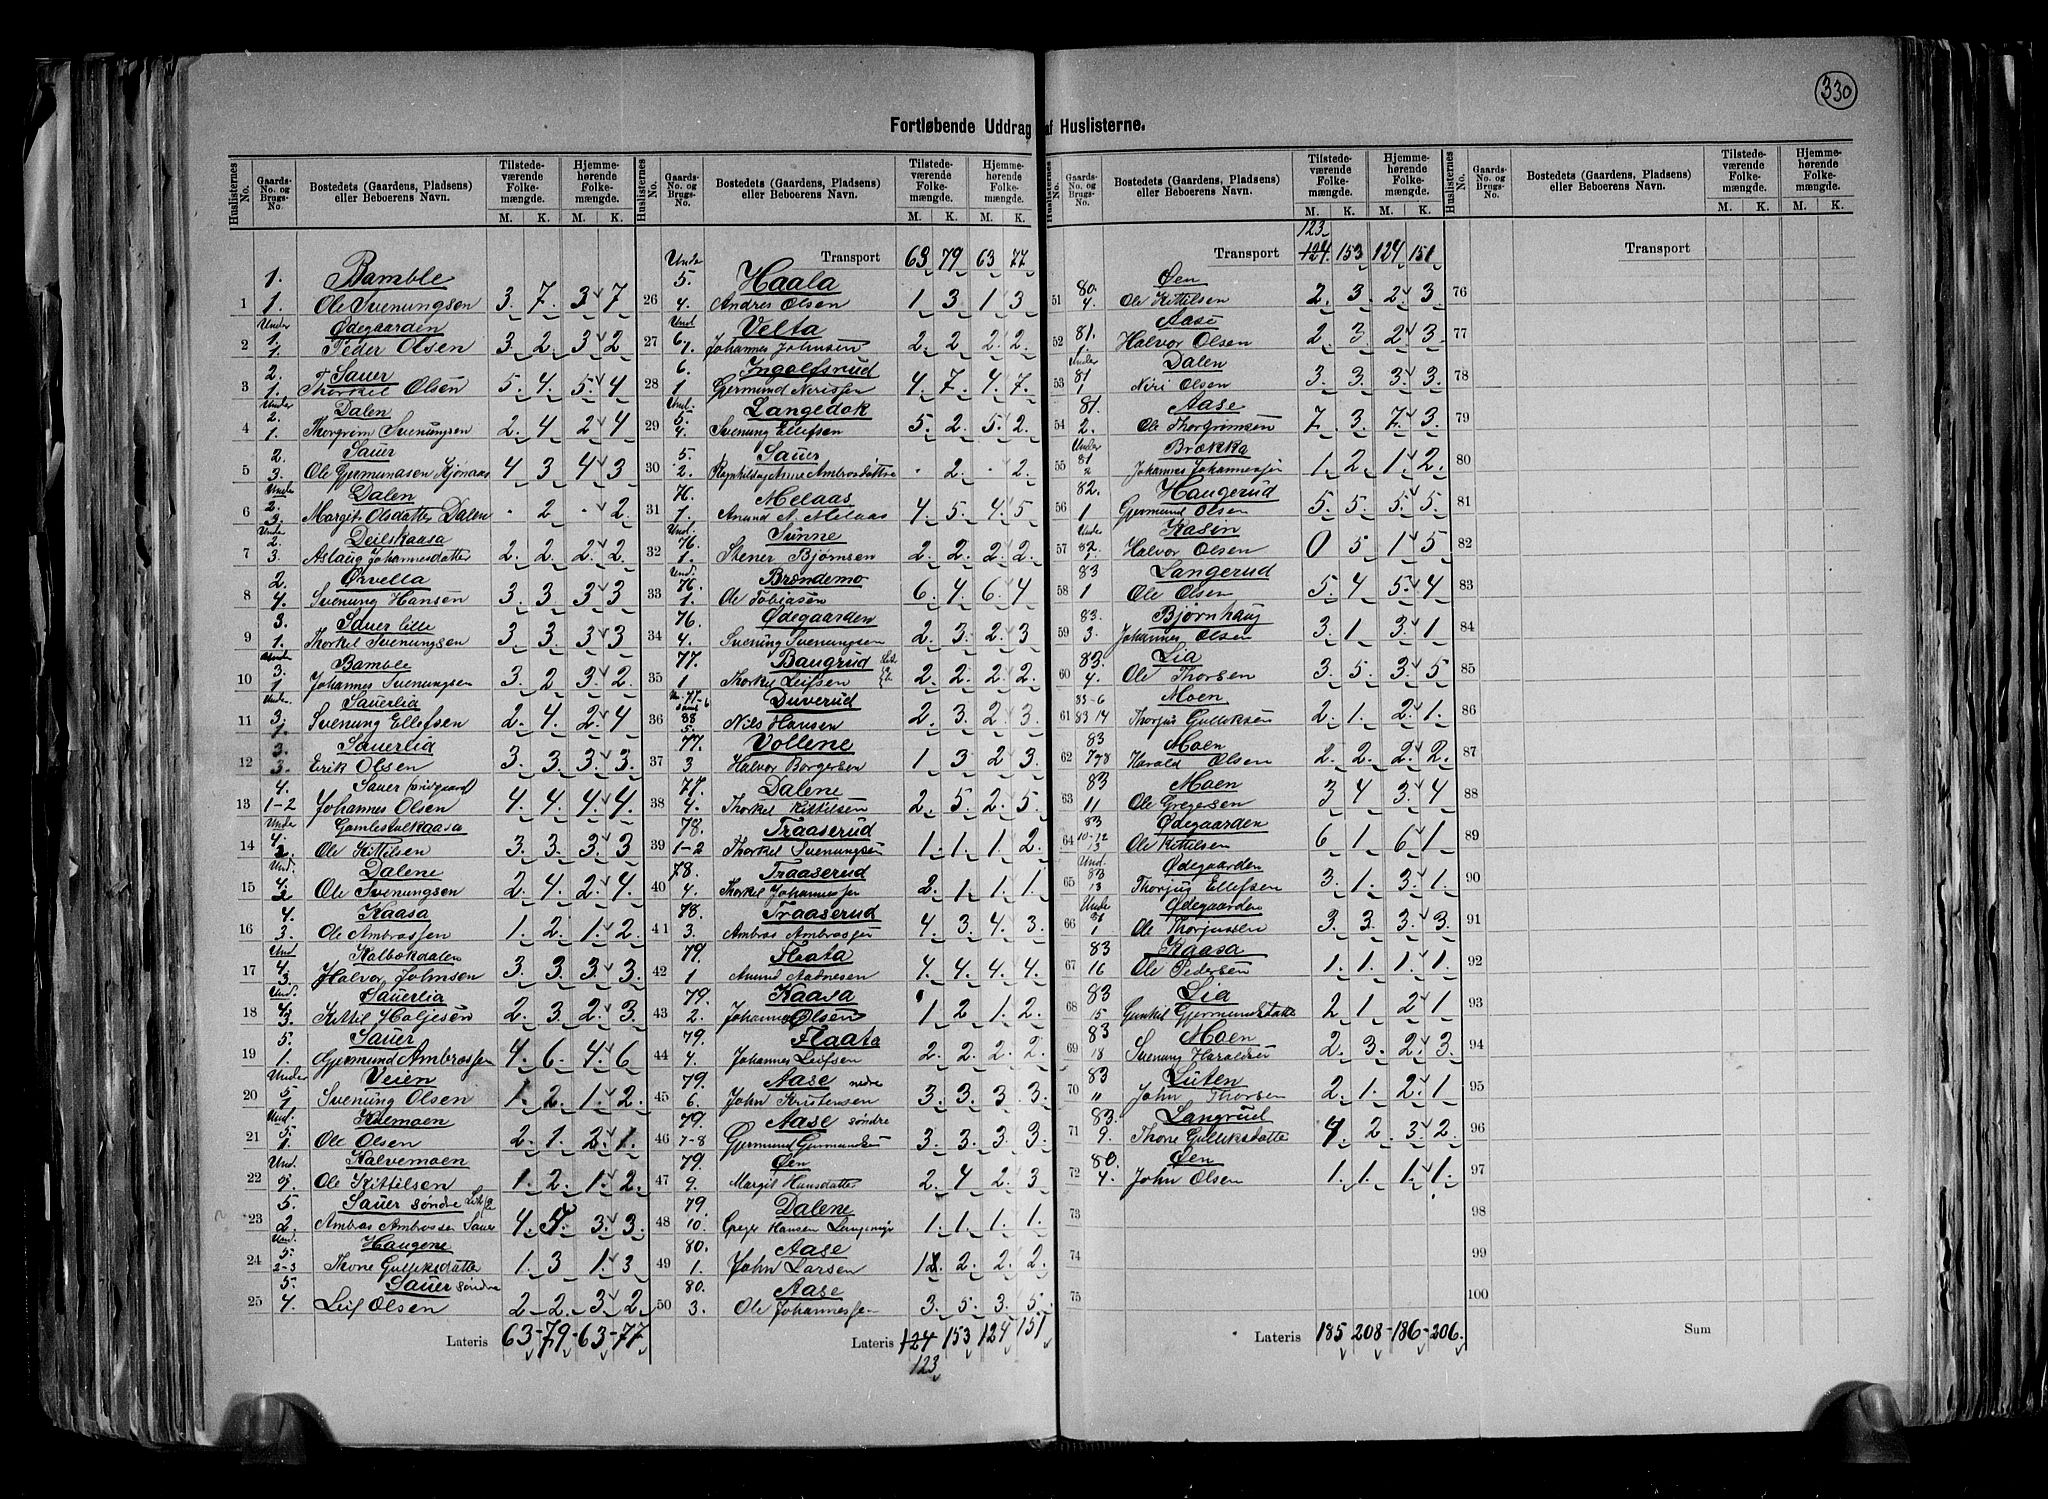 330
Fortløbende Uddrag af Huslisterne.
Huslisternes No.
Gaards-No. og Brugs-No.
Bostedets (Gaardens, Pladsens) eller Beboerens Navn.
Tilstedeværende Folkemængde.
Hjemmehørende Folkemængde.
M. K. M. K.
1. Bamble
1 1. Ole Svenungsen 3. 7. 3 7
Under 1. Ødegaarden
2 1. Peder Olsen 3. 2. 3 2
2. Sauer
3 1. Thorkil Olsen 5. 4. 5 4
Under 2. Dalen
4 1. Thorgrim Svenungsen 2. 4 2 4
2. Sauer
5 3. Ole Gjermundsen 4 3 4 3
Under 2. Dalen
6 3. Margit Olsdatter Dalen . 2 . 2
Under 2. Deilskaasa
7 3. Aslaug Johannesdatter 2. 2. 2. 2.
2. Ørvella
8 4. Svenung Hansen 3. 3 3 3
3. Sauer lille
9 1. Thorkel Svenungsen 3. 3. 3 3
Under 3. Bamble
10 1 Johannes Svenungsen 3. 2 3. 2
Under 3. Sauerlia
11 1 Svenung Ellefsen 2. 4. 2. 4
3. Sauerlia
12 3. Erik Olsen 3. 3. 3. 3.
4. Sauer
13 1-2 Johannes Olsen 4. 4. 4. 4.
Under 4. Gamlestulkaasa
14 2. Ole Kittilsen 3. 3. 3. 3
Und. 4. Dalene
15 2 Ole Svenungsen 2. 4. 2. 4.
4. Kaasa
16 3. Ole Ambrossen 1. 2. 1. 2.
Und 4. Kalbokdalen
17 3. Halvor Johnsen 3. 3. 3. 3.
Und. 4. Sauerlia
18 3. Kittil Holjesen 2. 3. 2. 3.
5. Sauer
19 1. Gjermund Ambrossen 4. 6. 4. 6
Under 5 Veien
20 1 Svenung Olsen 1. 2. 1. 2.
Und. 5. Klemoen
21 1. Ole Olsen 2. 1. 2. 1.
Und. Kalvemoen
22 Ole Kittilsen 1. 2. 1. 2.
5. Sauer søndre
23 2. Ambros Ambrossen Sauer 4. 3. 3.
Und. 5. Haugene
24 2-3 Thone Gulleiksdatter 1. 3 1. 3
5. Sauer søndre
25 4. Leif Olsen 2 2. 3 2
Lateris 63-79-63-77
Transport 63 79 63 77
Under 5. Haala
26 4. Andres Olsen 1 3. 1 3
Und 6. Velta
27 1. Johannes Johnsen 2 2 2. 2.
6. Ingolfsrud
28 1 Gjermund Nerissen 4. 7. 4. 7.
Und. 5. Langedok
29 4. Svenung Ellefsen 5. 2. 5. 2.
5. Sauer
30 2. Ragnhild og Anne Ambrosdøttre . 2. . 2.
76. Melaas
31 1. Anund A. Melaas 4. 5. 4. 5
Und. 76. Sunne
32 1. Stener Bjørnsen 2. 2. 2. 2.
Und. 76. Brøndemo
33 1. Ole Tobiasen 6. 4. 6. 4
76. Ødegaarden
34 4. Svenung Svenungsen 2. 3. 2. 3
77. Baugrud
35 1 Thorkil Leifsen 2. 2. 2. 2
Duverud
36 5. Nils Hansen 2. 3. 2. 3.
77. Vollene
37 3 Halvor Borgersen 1 3 2 3.
77. Dalene
38 4. Thorkel Kittilsen 2. 5. 2. 5.
78. Traaserud
39 1-2 Thorkel Svenungsen 1. 1. 1. 2.
78. Traaserud
40 4. Thorkil Johannessen 2. 1. 1. 1.
78. Traaserud
41 3. Ambros Ambrossen 4. 3. 4. 3.
79. Flaata
42 1 Anund Aadnesen 4. 4. 4. 4.
79. Kaasa
43 2. Johannes Olsen 1 2 1. 2.
79. Flaata
44 4. Johannes Leifsen 2. 2. 2. 2.
79. Aase nedre
45 6. John Kristensen 3. 3. 3. 3.
79. Aase søndre
46 7-8 Gjermund Gjermundsen 3. 3. 3. 3.
79. Øen
47 9. Margit Hansdatter 2. 4 2. 3
79. Dalene
48 10. Greger Hansen 1. 1. 1. 1.
80. Aase
49 1. John Larsen 2. 2. 2.
80. Aase
50 3. Ole Johannessen 3. 5. 3. 5.
Lateris 124 153 124 151
123
123
Transport 124 153 124 151
80. Øen
51 4. Ole Kittilsen 2. 3. 2. 3.
81. Aase
52 1. Halvor Olsen 2. 3 2. 3
Under 81 Dalen
53 1 Neri Olsen 3. 3. 3. 3.
81. Aase
54 2. Ole Thorgrimsen 7. 3. 7. 3.
Under 81 Brækka
55 2 Johannes Johannessen 1. 2. 1. 2.
82. Haugerud
56 1 Gjermund Olsen 5. 5. 5. 5.
Under 82. Kasin
57 1. Halvor Olsen 0 5. 1. 5
83 Langerud
58 1 Ole Olsen 5. 4 5. 4
83. Bjørnhaug
59 3. Johannes Olsen 3. 1. 3. 1
83. Lia
60 4. Ole Thorsen 3. 5. 3. 5
83-6 Moen
61 83 14 Thorjus Gulleksen 2. 1. 2. 1.
83 Moen
62 7 og 8 Harald Olsen 2. 2. 2. 2.
83 Moen
63 11 Ole Gregersen 3 4 3. 4
83 Ødegaarden
64 10-12 13 Ole Kittilsen 6 1. 6 1.
Und. 83 Ødegaarden
65 13 Thorjus Ellefsen 3. 1. 3. 1.
Under Ødegaarden
66 1 Ole Thorjussen 3. 3. 3. 3.
83 Kaasa
67 16 Ole Pedersen 1. 1. 1. 1.
83 Lia
68 15 Gunhil Gjermundsdatter 2 1. 2 1
83 Moen
69 18 Svenung Haraldsen 2. 3. 2. 3.
83 Luten
70 " John Thorsen 2. 1. 2. 1
83. Langrud
71 9. Thone Gulleiksdatter 2. 3. 2.
80. Øen
72 4. John Olsen 1. 1. 1. 1.
73
74
75
Lateris 185 208-186-206.
Transport
76
77
78
79
80
81
82
83
84
85
86
87
88
89
90
91
92
93
94
95
96
97
98
99
100
Sum